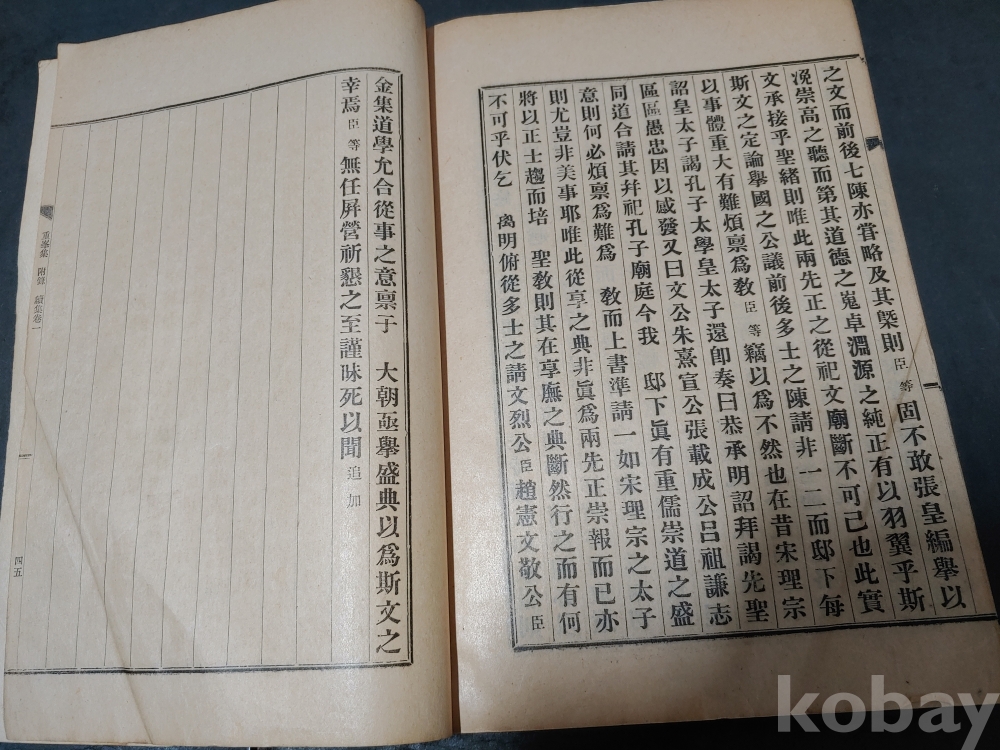 之文而前後七陳亦甞略及其槩則臣等固不敢張皇編擧以
浼崇高之聽而第其道德之嵬卓淵源之純正有以羽翼乎斯
文承接乎聖緖則唯此兩先正之從祀文廟斷不可已也此實
斯文之定論擧國之公議前後多士之陳請非一二而邸下每
以事體重大有難煩禀爲敎臣等竊以爲不然也在昔宋理宗
詔皇太子謁孔子太學皇太子還卽奏曰恭承明詔拜謁先聖
區區愚忠因以感發又曰文公朱熹宣公張載成公呂祖謙志
同道合請其幷祀孔子廟庭今我 邸下眞有重儒崇道之盛
意則何必煩禀爲難爲 敎而上書準請一如宋理宗之太子
則尤豈非美事耶唯此從享之典非眞爲兩先正崇報而已亦
將以正士趨而培 聖敎則其在享廡之典斷然行之而有何
不可乎伏乞 离明俯從多士之請文烈公臣趙憲文敬公臣
金集道學允合從事之意禀于 大朝亟擧盛典以爲斯文之
幸焉臣等無任屛營祈懇之至謹昧死以聞追加
重峯集 附錄 續集卷一
四五
kobay